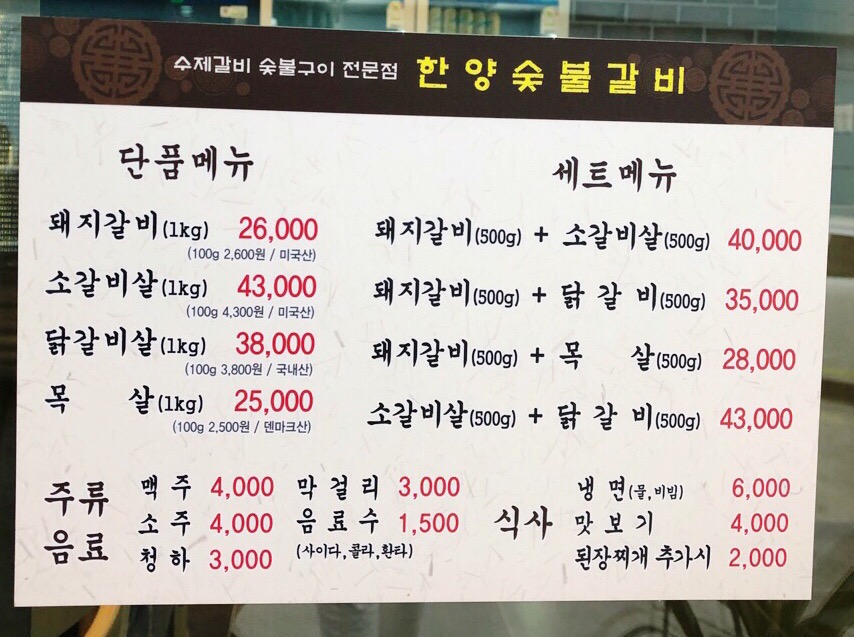 수제갈비 숯불구이 전문점 한양숯불갈비
단품메뉴
돼지갈비(1kg) 26,000
(100g 2,600원 / 미국산)
소갈비살(1kg) 43,000
(100g 4,300원 / 미국산)
닭갈비살(1kg) 38,000
(100g 3,800원 / 국내산)
목 살(1kg) 25,000
(100g 2,500원 / 덴마크산)
세트메뉴
돼지갈비(500g) + 소갈비살(500g) 40,000
돼지갈비(500g) + 닭갈비(500g) 35,000
돼지갈비(500g) + 목 살(500g) 28,000
소갈비살(500g) + 닭갈비(500g) 43,000
주류
음료
맥주 4,000
소주 4,000
청하 3,000
막걸리 3,000
음료수 1,500
(사이다,콜라,환타)
식사
냉면(물,비빔) 6,000
맛보기 4,000
된장찌개 추가시 2,000